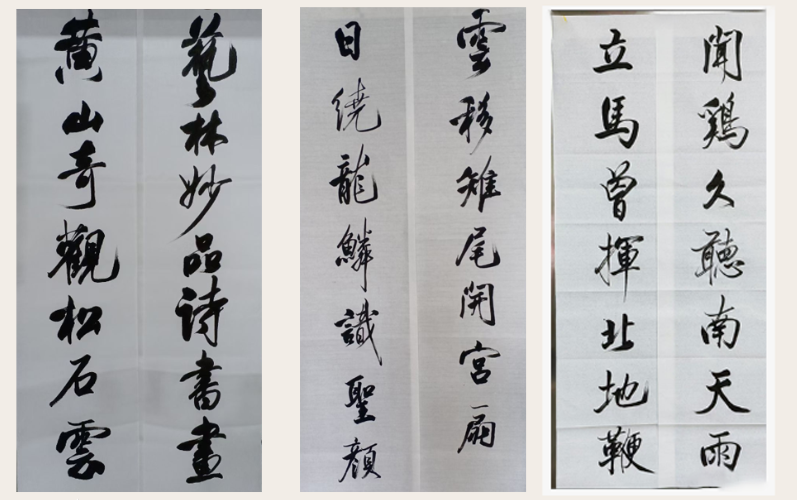 藝林妙品詩書畫
黄山奇觀松石雲
雲移雉尾開宮扇
日繞龍鱗識聖顔
聞鷄久聽南天雨
立馬曾揮北地鞭